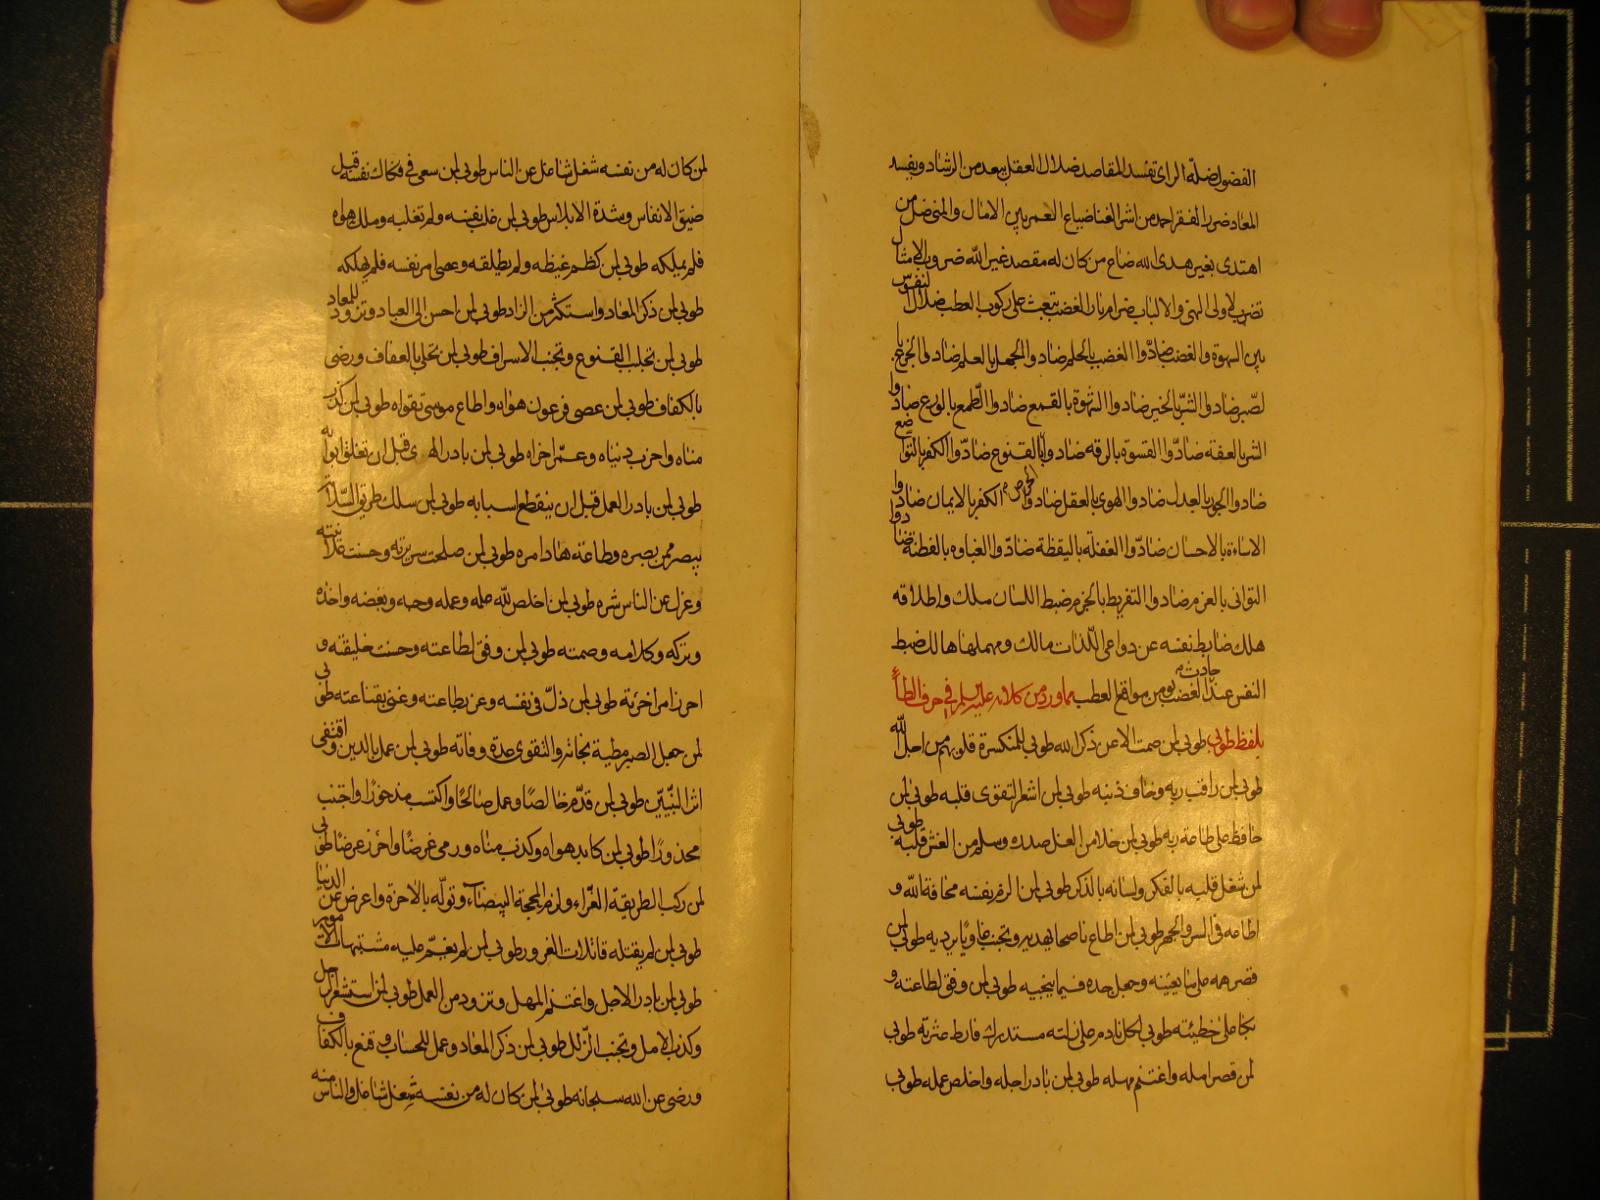 الفضول ضلة الراى تفسد المقاصد ضلال العقل يبعد من الرشاد ويفسد
المعاد ضرر الفقر احمد من اشر الغنا ضياع العمر بين الامال والمنى ضل من
اهتدى بغير هدى الله ضاع من كان له مقصد غير الله ضروب الامثال
تضرب لاولى النهى والالباب ضرام نار الغضب تبعث على ركوب العطب ضلال النفوس
بين الشهوة والغضب ضادوا الغضب بالحلم ضادوا الجهل بالعلم ضادوا الجزع با
لصبر ضادوا الشر بالخير ضادوا الشهوة بالقمع ضادوا الطمع بالورع ضادوا
الشر بالعفة ضادوا القسوة بالرقه ضادوا بالقنوع ضادوا الكفر بالتواضع
ضادوا الجور بالعدل ضادوا الهوى بالعقل ضادوا الحرص الكفر بالايمان ضادوا
الاساءة بالاحسان ضادوا الغفلة باليقظة ضادوا الغباوه بالفطنة ضادوا
التوانى بالعزم ضادوا التفريط بالحزم ضبط اللسان ملك واطلاقه
هلك ضابط نفسه عن دواعى اللذات مالك ومهملها هالك ضبط
النفس عند حادث الغضب يومن مواقع العطب مما ورد من كلامه عليه السلم فى حرف الطاء
بلفظ طوبى طوبى لمن صمت الا عن ذكر الله طوبى للمنكسرة قلوبهم من اجل الله
طوبى لمن راقب ربه وخاف ذنبه طوبى لمن اشعر التقوى قلبه طوبى لمن
حافظ على طاعة ربه طوبى لمن خلا من الغل صدره وسلم من الغش قلبه طوبى
لمن شغل قلبه بالفكر ولسانه بالذكر طوبى لمن الزم نفسه مخافة الله و
اطاعه فى السر والجهر طوبى لمن اطاع ناصحا يهديه وتجنب غاويا يرديه طوبى لمن
قصر همه على ما يعينه وجعل جده فيما ينجيه طوبى لمن وفق لطاعته و
بكا على خطيئته طوبى لكل نادم على زلته مستدرك فارط عثرته طوبى
لمن قصر امله واغتنم مهله طوبى لمن بادر اجله واخلص عمله طوبى
لمن كان له من نفسه شغل شاغل عن الناس طوبى لمن سعى فى فكاك نفسه قبل
ضيق الانفاس وشدة الابلاس طوبى لمن غلب نفسه ولم تغلبه وملك هواه
فلم يملكه طوبى لمن كظم غيظه ولم يطلقه وعصى امر نفسه فلم يهلكه
طوبى لمن ذكر المعاد واستكثر من الزاد طوبى لمن احسن الى العباد وتزود للمعاد
طوبى لمن تجلبب القنوع وتجنب الاسراف طوبى لمن تحلى بالعفاف ورضى
بالكفاف طوبى لمن عصى فرعون هواه واطاع موسى تقواه طوبى لمن كذب
مناه واخرب دنياه وعمر اخراه طوبى لمن بادر الهدى قبل ان تغلق ابوابه
طوبى لمن بادر العمل قبل ان ينقطع اسبابه طوبى لمن سلك طريق السلامة
ببصر من بصره وطاعة هاد امره طوبى لمن صلحت سريرته وحسنت علانيته
وعزل عن الناس شره طوبى لمن اخلص لله علمه وعمله وحبه وبغضه واخذه
وتركه وكلامه وصمته طوبى لمن وفق لطاعته وحسنت خليقته و
احرز امر اخرته طوبى لمن ذل فى نفسه وعز بطاعته وغنى بقناعته طوبى
لمن جعل الصبر مطية نجاته والتقوى عدة وفاته طوبى لمن عمل بالدين واقتفى
اثر النبيين طوبى لمن قدم خالصا وعمل صالحا واكتسب مذخورا واجتنب
محذورا طوبى لمن كابد هواه وكذب مناه ورمى غرضا واحرز عرضا طوبى
لمن ركب الطريقة الغراء ولزم المحجة البيضاء وتوله بالاخرة واعرض عن الدنيا
طوبى لمن لم يقتله قاتلات الغرور طوبى لمن لم يغم عليه مشتبهات الامور
طوبى لمن بادر الاجل واغتنم المهل وتزود من العمل طوبى لمن استشعر الوجل
وكذب الامل وتجنب الزلل طوبى لمن ذكر المعاد وعمل للحساب وقنع بالكفاف
ورضى عن الله سبحانه طوبى لمن كان له من نفسه شغل شاغل والناس منه